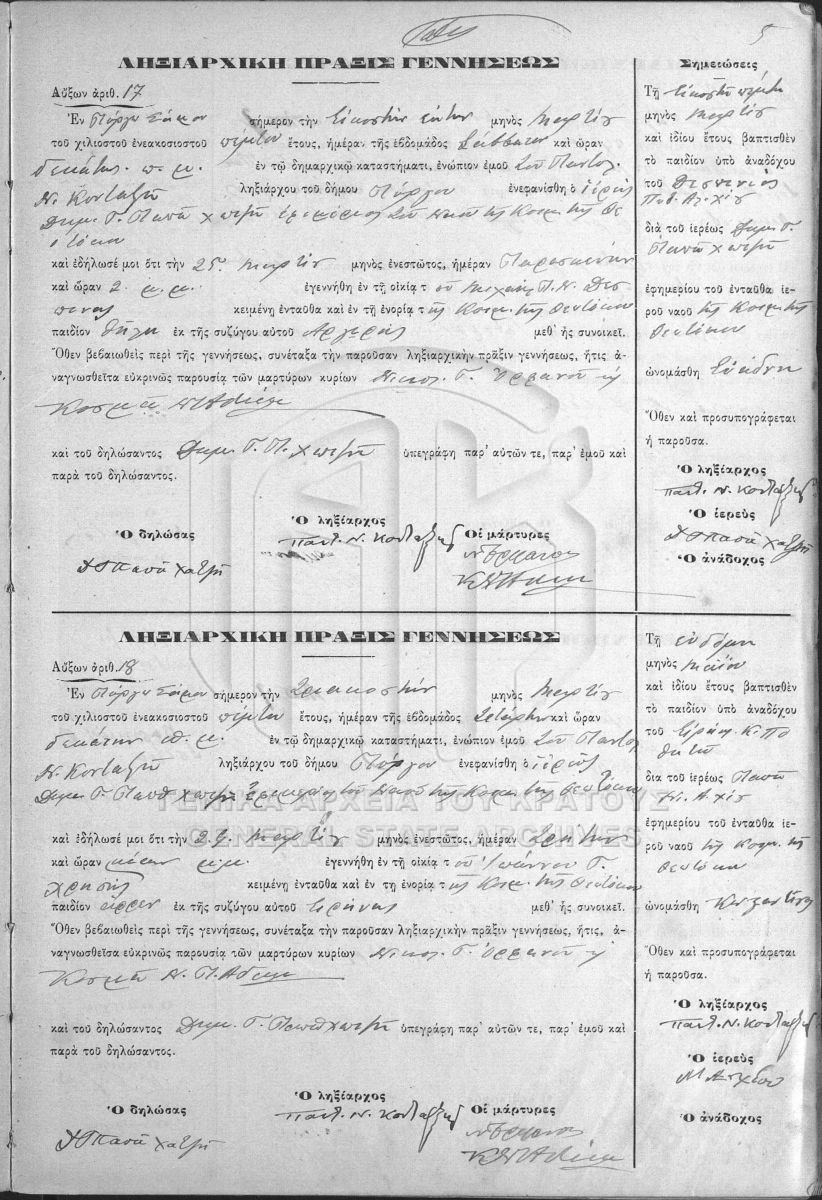 5
ΛΗΞΙΑΡΧΙΚΗ ΠΡΑΞΙΣ ΓΕΝΝΗΣΕΩΣ
Αὔξων ἀριθ. 17
Ἐν Πύργῳ Σάμου σήμερον τὴν εἰκοστὴν ἕκτην μηνὸς Μαρτίου
τοῦ χιλιοστοῦ ἐνεακοσιοστοῦ πέμπτου ἔτους, ἡμέραν τῆς ἑβδομάδος Σάββατον καὶ ὥραν
δεκάτην π. μ. ἐν τῷ δημαρχικῷ καταστήματι, ἐνώπιον ἐμοῦ τοῦ Παντελ.
Ν. Κονταξῆ ληξιάρχου τοῦ δήμου Πύργου ἐνεφανίσθη ὁ ἱερεὺς
Δημ. Γ. Παπᾶ χατζῆ ἐφημέριος τοῦ ναοῦ τῆς Κοιμ. τῆς Θε
οτόκου
καὶ ἐδήλωσέ μοι ὅτι τὴν 25. Μαρτίου μηνὸς ἐνεστῶτος, ἡμέραν Παρασκευὴν
καὶ ὥραν 2 μ.μ. ἐγεννήθη ἐν τῇ οἰκίᾳ τοῦ Μιχαὴλ Π. Ν. Δεσ
ποινας κειμένῃ ἐνταῦθα καὶ ἐν τῇ ἐνορίᾳ τῆς Κοιμ. τῆς Θεοτόκου
παιδίον θῆλυ ἐκ τῆς συζύγου αὐτοῦ Ἀργυρῆς μεθ' ἧς συνοικεῖ.
Ὅθεν βεβαιωθεὶς περὶ τῆς γεννήσεως, συνέταξα τὴν παροῦσαν ληξιαρχικὴν πρᾶξιν γεννήσεως, ἥτις ἀ-
ναγνωσθεῖτα εὐκρινῶς παρουσίᾳ τῶν μαρτύρων κυρίων Νικολ. Γ. Ὀρφανοῦ κ
Κοσμᾶ
καὶ τοῦ δηλώσαντος Δημ. Γ. Π. χατζῆ ὑπεγράφη παρ' αὐτῶν τε, παρ' ἐμοῦ καὶ
παρὰ τοῦ δηλώσαντος.
Ὁ δηλώσας Ὁ ληξίαρχος Οἱ μάρτυρες
Παντ. Ν. Κονταξῆς
Παπᾶ Χατζῆ
Σημειώσεις
Τῇ εἰκοστῇ πέμπτῃ
μηνὸς Μαρτίου
καὶ ἰδίου ἔτους βαπτισθὲν
τὸ παιδίον ὑπὸ ἀναδόχου
τοῦ Δεσποινὸς
διὰ τοῦ ἱερέως Δημ. Γ.
Παπᾶ χατζῆ
ἐφημερίου τοῦ ἐνταῦθα ἱε-
ροῦ ναοῦ τῆς Κοιμ. τῆς
Θεοτόκου
ὠνομάσθη Εὐάδνη
Ὅθεν καὶ προσυπογράφεται
ἡ παροῦσα.
Ὁ ληξίαρχος
Παντ. Ν. Κονταξῆς
Ὁ ἱερεὺς
Παπᾶ Χατζῆ
Ὁ ἀνάδοχος
ΛΗΞΙΑΡΧΙΚΗ ΠΡΑΞΙΣ ΓΕΝΝΗΣΕΩΣ
Αὔξων ἀριθ. 18
Ἐν Πύργῳ Σάμου σήμερον τὴν τριακοστὴν μηνὸς Μαρτίου
τοῦ χιλιοστοῦ ἐνεακοσιοστοῦ πέμπτου ἔτους, ἡμέραν τῆς ἑβδομάδος Τετάρτην καὶ ὥραν
δεκάτην π. μ. ἐν τῷ δημαρχικῷ καταστήματι, ἐνώπιον ἐμοῦ τοῦ Παντελ.
Ν. Κονταξῆ ληξιάρχου τοῦ δήμου Πύργου ἐνεφανίσθη ὁ ἱερεὺς
Δημ. Γ. Παπᾶ χατζῆ ἐφημέριος τοῦ ναοῦ τῆς Κοιμ. τῆς Θεοτόκου
ΓΕΝΙΚΑ ΑΡΧΕΙΑ ΤΟΥ ΚΡΑΤΟΥΣ
GENERAL STATE ARCHIVES
καὶ ἐδήλωσέ μοι ὅτι τὴν 29 Μαρτίου μηνὸς ἐνεστῶτος, ἡμέραν Τρίτην
καὶ ὥραν μ.μ. ἐγεννήθη ἐν τῇ οἰκίᾳ τοῦ Ἰωάννου Γ.
Χρησῆς κειμένῃ ἐνταῦθα καὶ ἐν τῇ ἐνορίᾳ τῆς Κοιμ. τῆς Θεοτόκου
παιδίον ἄρρεν ἐκ τῆς συζύγου αὐτοῦ Εἰρήνης μεθ' ἧς συνοικεῖ.
Ὅθεν βεβαιωθεὶς περὶ τῆς γεννήσεως, συνέταξα τὴν παροῦσαν ληξιαρχικὴν πρᾶξιν γεννήσεως, ἥτις, ἀ-
ναγνωσθεῖσα εὐκρινῶς παρουσίᾳ τῶν μαρτύρων κυρίων Νικολ. Γ. Ὀρφανοῦ κ
Κοσμᾶ Ν. Π.
καὶ τοῦ δηλώσαντος Δημ. Γ. Παπᾶ χατζῆ ὑπεγράφη παρ' αὐτῶν τε, παρ' ἐμοῦ καὶ
παρὰ τοῦ δηλώσαντος.
Ὁ δηλώσας Ὁ ληξίαρχος Οἱ μάρτυρες
Παντ. Ν. Κονταξῆς
Παπᾶ Χατζῆ
Τῇ ἑβδόμῃ
μηνὸς Μαΐου
καὶ ἰδίου ἔτους βαπτισθὲν
τὸ παιδίον ὑπὸ ἀναδόχου
τοῦ
διὰ τοῦ ἱερέως Παπᾶ
ἐφημερίου τοῦ ἐνταῦθα ἱε-
ροῦ ναοῦ τῆς Κοιμ. τῆς
Θεοτόκου
ὠνομάσθη Κωνσταντῖνος
Ὅθεν καὶ προσυπογράφεται
ἡ παροῦσα.
Ὁ ληξίαρχος
Παντ. Ν. Κονταξῆς
Ὁ ἱερεὺς
Ὁ ἀνάδοχος